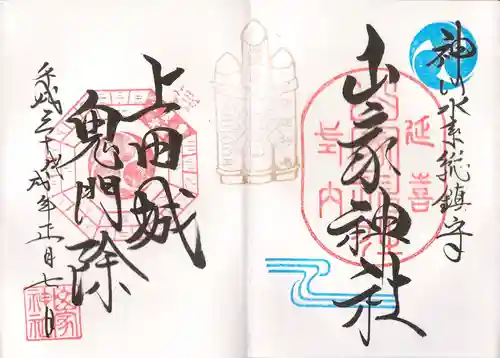 神川水系総鎮守
延喜
山家神社
式内
上田城
鬼門除
平成三十戊戌年正月七日
山家
神社